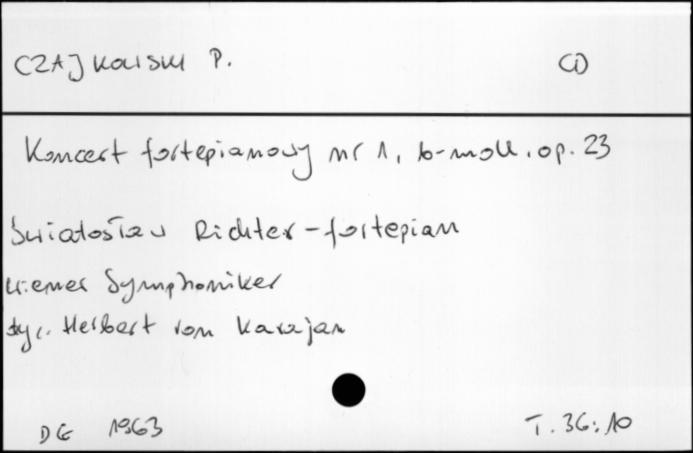 CZAJKOWSKI P. CD
Koncert fortepianowy nr 1, b-moll, op. 23
Światosław Richter - fortepian
Wiener Symphoniker
dyr. Herbert von Karajan
DG 1963 T. 36:10